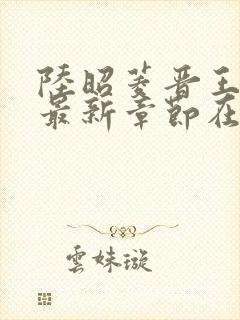 陸昭菱晉王
最新章節在
雲妹璇